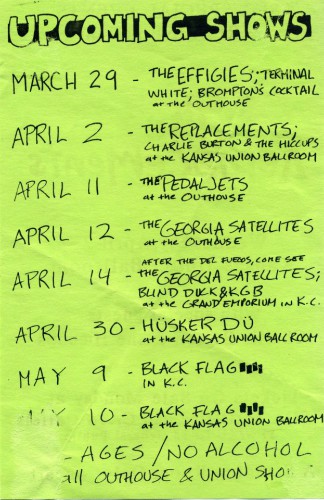 UPCOMING SHOWS
MARCH 29 - THE EFFIGIES; TERMINAL
WHITE; BROMPTON'S COCKTAIL
at the OUTHOUSE
APRIL 2 - THE REPLACEMENTS;
CHARLIE BURTON & THE HICCUPS
at the KANSAS UNION BALLROOM
APRIL 11 - THE PEDALJETS
at the OUTHOUSE
APRIL 12 - THE GEORGIA SATELLITES
at the OUTHOUSE
AFTER THE DEL FUEGOS, COME SEE
APRIL 14 - THE GEORGIA SATELLITES;
BLIND DUKK & KGB
at the GRAND EMPORIUM IN K.C.
APRIL 30 - HÜSKER DÜ
at the KANSAS UNION BALLROOM
MAY 9 - BLACK FLAG
IN K.C.
10 - BLACK FLAG
at the KANSAS UNION BALLROOM
- AGES / NO ALCOHOL
all OUTHOUSE & UNION